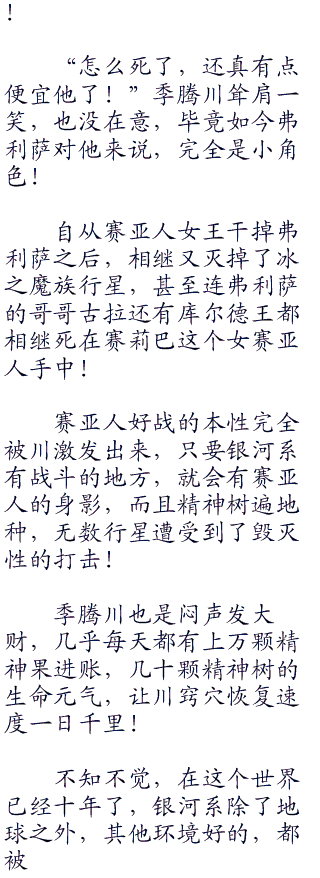 ！
“怎么死了，还真有点
便宜他了！”季腾川耸肩一
笑，也没在意，毕竟如今弗
利萨对他来说，完全是小角
色！
自从赛亚人女王干掉弗
利萨之后，相继又灭掉了冰
之魔族行星，甚至连弗利萨
的哥哥古拉还有库尔德王都
相继死在赛莉巴这个女赛亚
人手中！
赛亚人好战的本性完全
被川激发出来，只要银河系
有战斗的地方，就会有赛亚
人的身影，而且精神树遍地
种，无数行星遭受到了毁灭
性的打击！
季腾川也是闷声发大
财，几乎每天都有上万颗精
神果进账，几十颗精神树的
生命元气，让川窍穴恢复速
度一日千里！
不知不觉，在这个世界
已经十年了，银河系除了地
球之外，其他环境好的，都
被